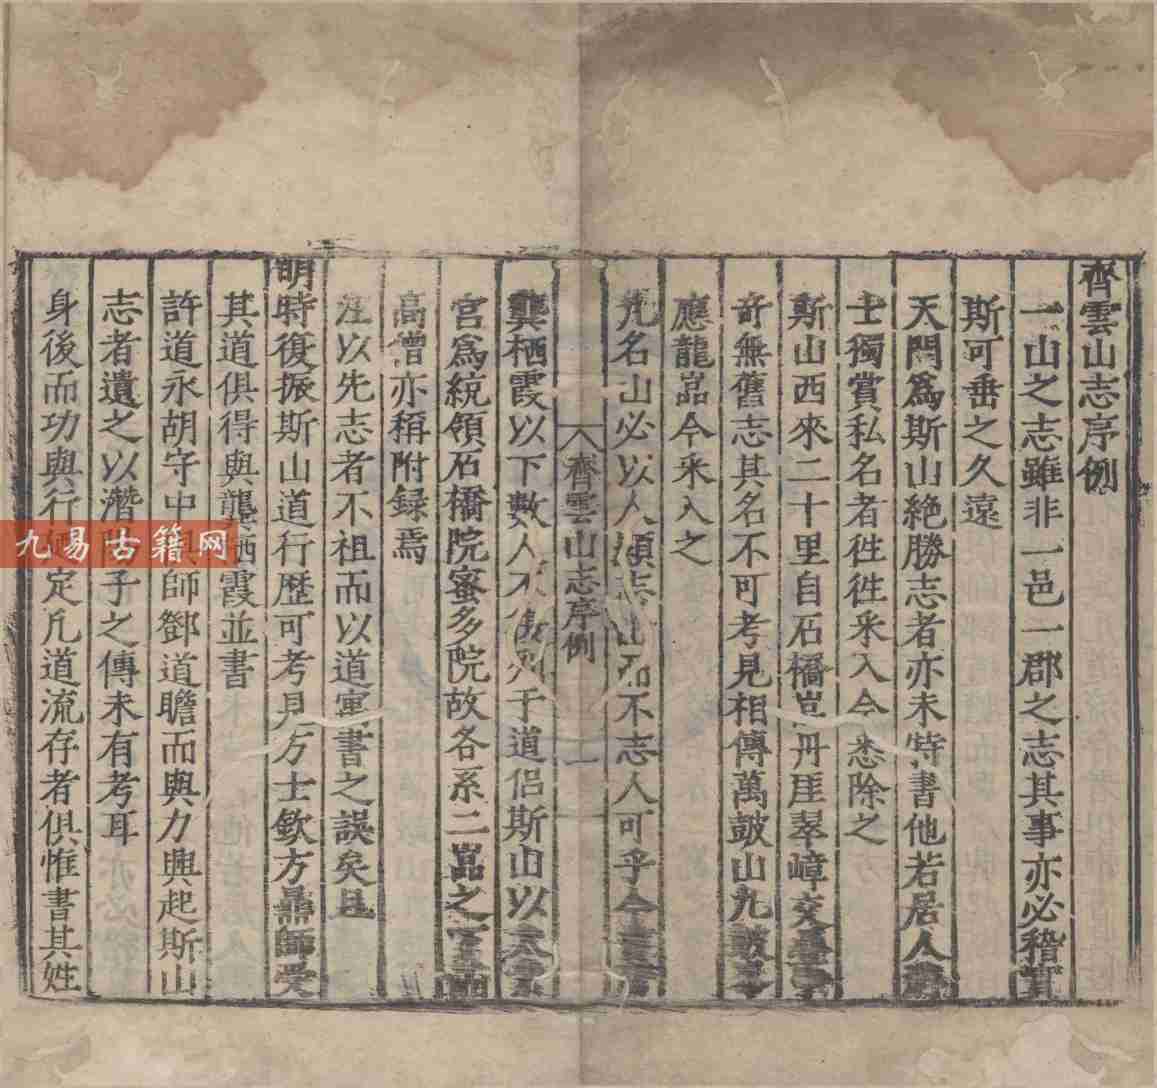 齊雲山志序例
一山之志雖非一邑一郡之志其事亦必稽實
斯可垂之久遠
天門爲斯山絶勝志者亦未特書他若居人
士獨賞私名者徃徃采入今悉除之
斯山西來二十里自石橋豈丹厓翠嶂交
奇無舊志其名不可考見相傳萬皷山九
應龍嵓今采入之
凢名山必以人顯志山而不志人可乎今
齊雲山志序例
龔栖霞以下數人不列于道侣斯山以
宫爲統領石橋院蜜多院故各系二嵓之
高僧亦稱附録焉
汪以先志者不祖而以道寓書之誤矣且
明時復振斯山道行歴可考見方士欽方鼎師受
其道俱得與龔栖霞並書
許道永胡守中師鄧道瞻而與力興起斯山
志者遺之以潛子之傳未有考耳
身後而功與行定凢道流存者俱惟書其姓
九易古籍网